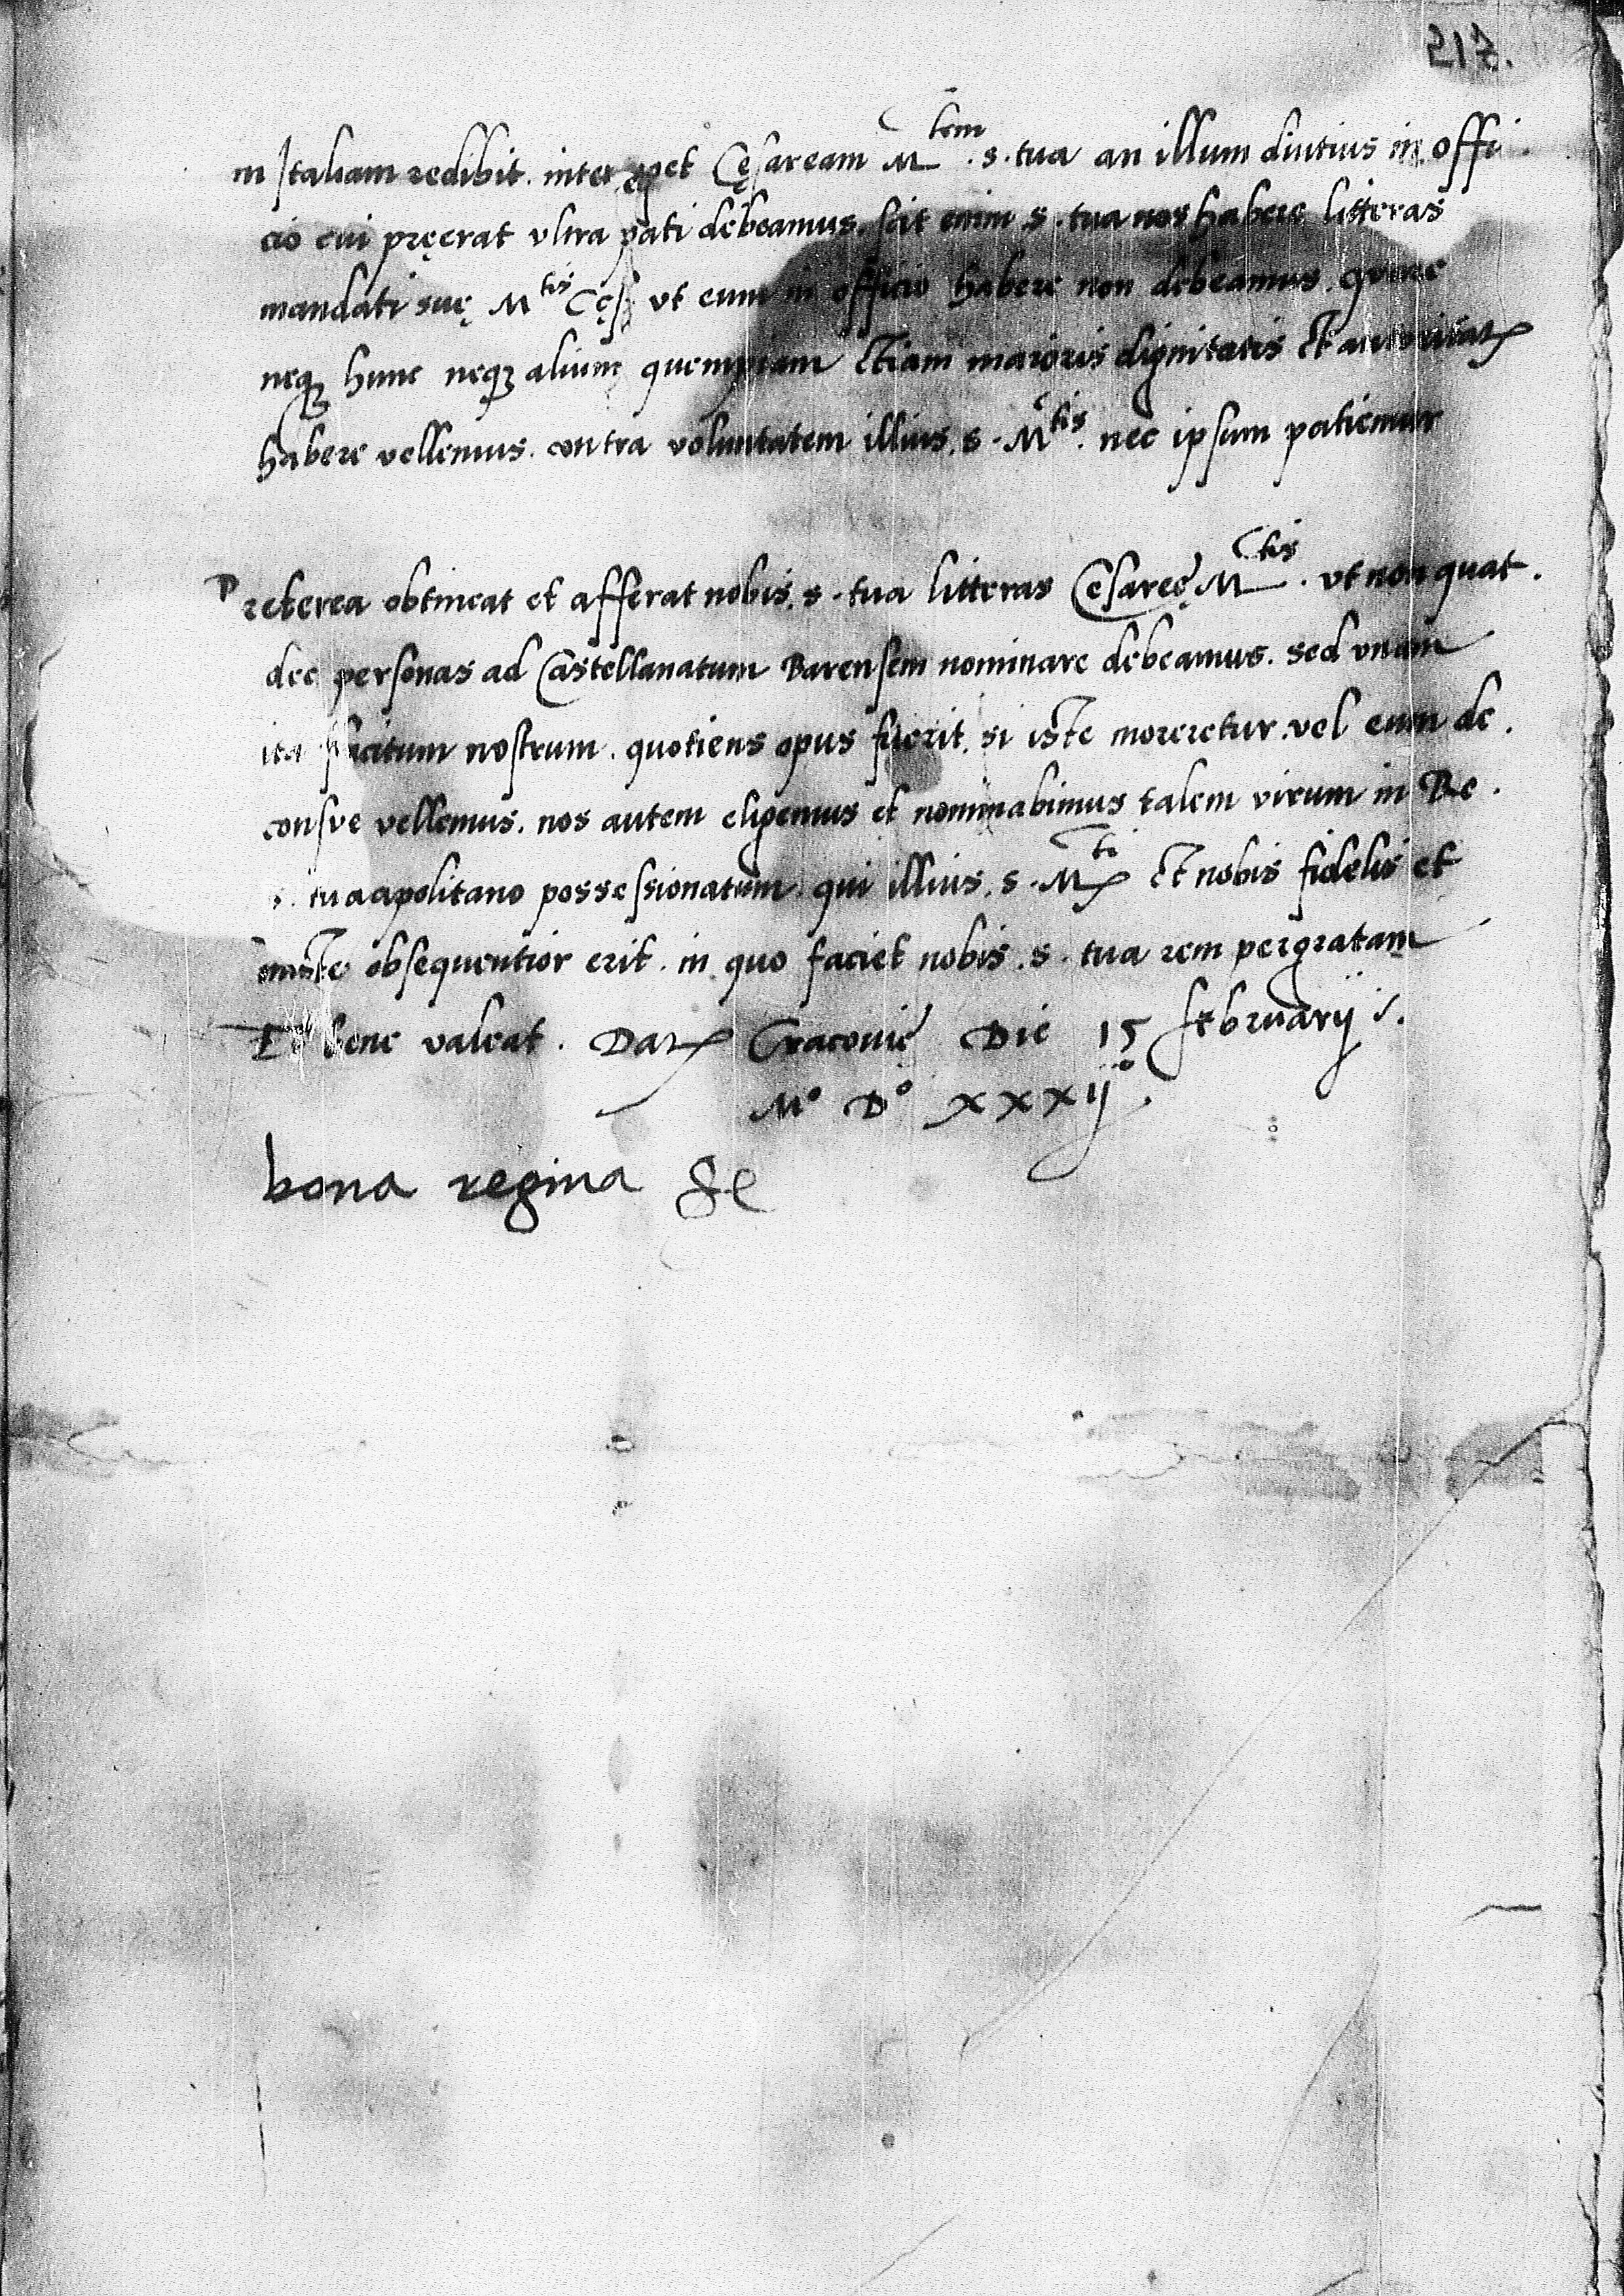 in Italiam redibit. interroget Cęsaream M<sup>tem</sup>. s. tua an illum diutius in offi
cio cui pręerat vltra pati debeamus. scit enim s. tua nos habere litteras
mandati suę M<sup>tis</sup> Cęs. vt eum in officio habere non debeamus. quare
neq3 hunc neq3 alium quempiam etiam maioris dignitatis et autoritat
habere vellemus. contra voluntatem illius. s. M<sup>tis</sup>. nec ipsum patiemur
Preterea obtineat et afferat nobis. s. tua litteras Cesareę M<sup>tis</sup>. vt non quat.
dec personas ad Castellanatum Barensem nominare debeamus. sed vnam
ita placitum nostrum. quotiens opus fuerit. si iste moreretur. vel eum de.
vellemus. nos autem eligemus et nominabimus talem virum in Re.
tua apolitano possessionatum. qui illius. s. M<sup>ti</sup> et nobis fidelis et
obsequentior erit. in quo faciet nobis. s. tua rem pergratam
Et bene valeat. Dat Cracovię Die 15 februarij
M° D° XXXij°.
bona regina